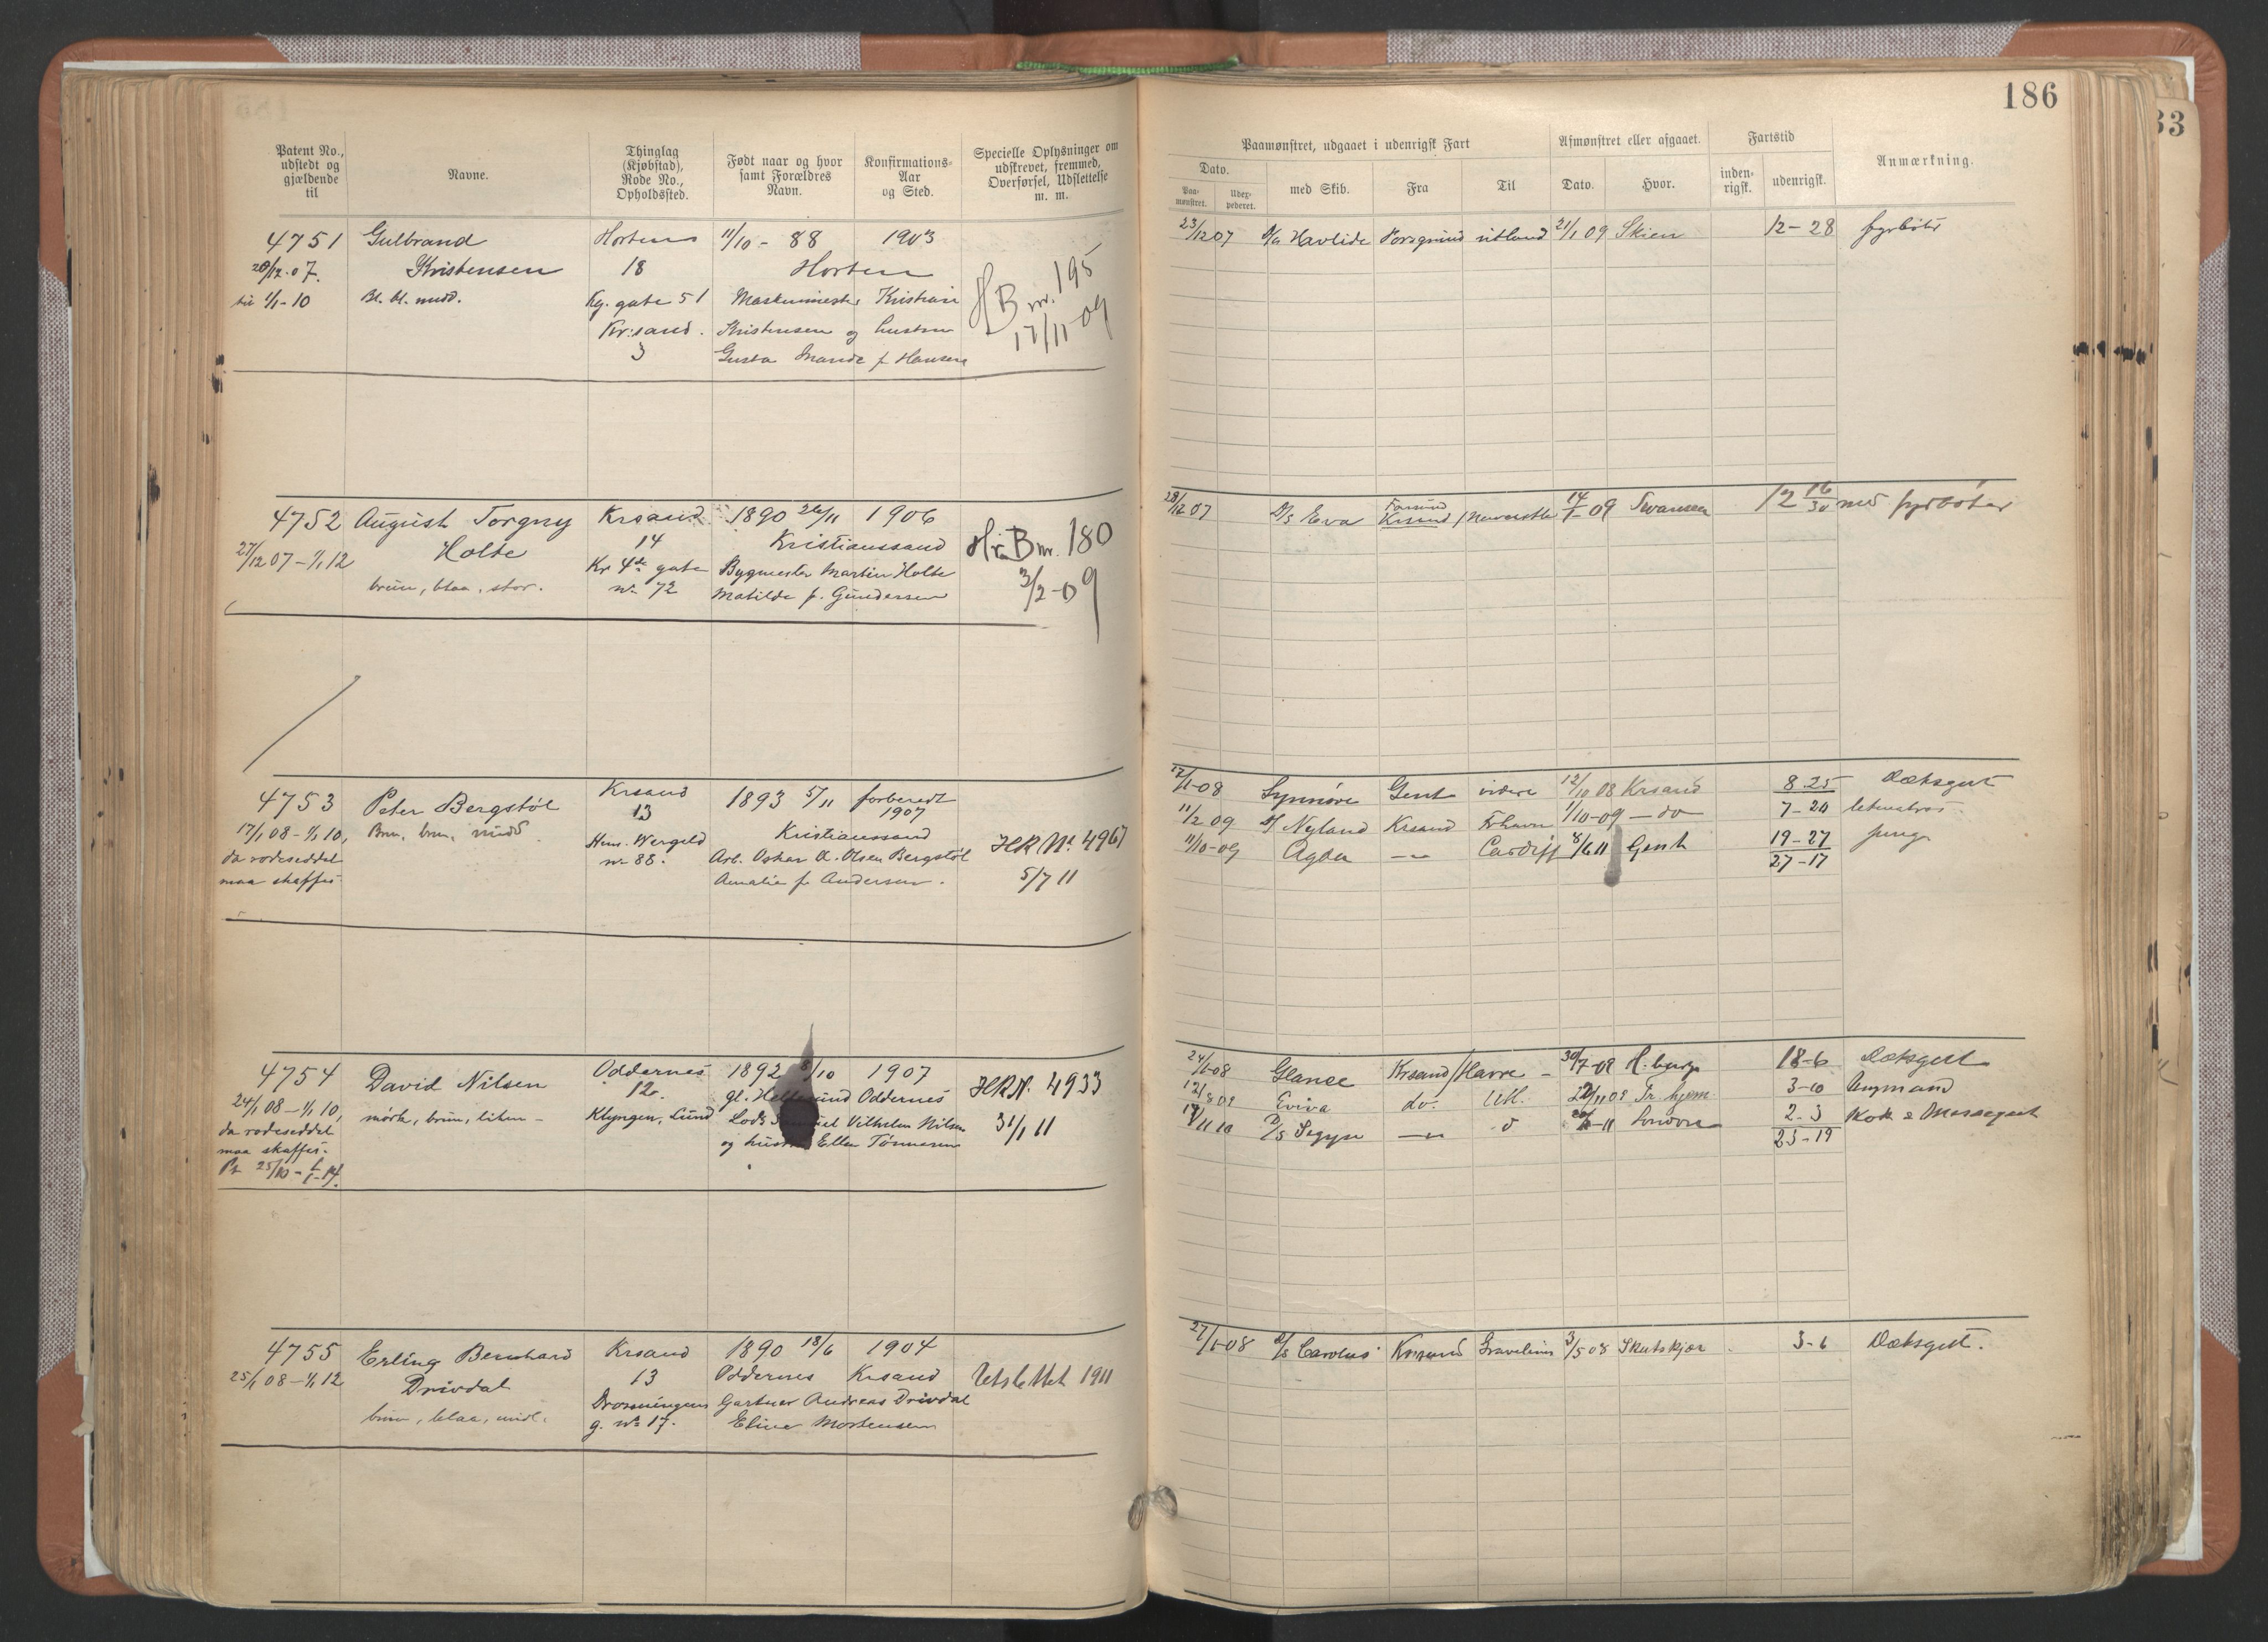 186
33
Patent No., udstedt og gjældende til
Navne.
Thinglag (Kjøbstad), Rode No., Opholdssted.
Født naar og hvor samt Forældres Navn.
Konfirmations-Aar og Sted.
Specielle Oplysninger om udskrevet, fremmed, Overførsel, Udslettelse m. m.
Paamønstret, udgaaet i udenrigsk Fart
Afmønstret eller afgaaet.
Fartstid
Anmærkning.
Dato.
Paa-mønstret.
Udex-pederet.
med Skib.
Fra
Til
Dato.
Hvor.
inden-rigsk.
udenrigsk.
4751 Gulbrand Horten 11/10 - 88 1903
28/12.07. Kristensen 18 Horten
til 1/1-10 Bl. bl. midd. Kg. gate 51 Maskinmester Kristian
Kr:sand. Kristensen og hustru
3 Gusta f. Hansen
HB nr. 195
17/11-09
23/12 07 Havlide Porsgrund utland 21/1 09 Skien 12-28 fyrbøter
4752 August Torgny Krsand 1890 26/11 1906
27/12 07-1/1 12 Holte 14 Kristianssand
brun, blaa, stor. Kr 4de gate Bygmester Martin Holte
no 72 Matilde f. Gundersen
Hr.B nr. 180
3/2-09
28/12 07 D/S Eva Farsund Krsand / Newcastle 14/1-09 Swansea 12 16/30 md fyrbøter
4753 Peter Bergstøl Krsand 1893 5/11 forberedt 1907
17/1 08-1/1 10, Brun, brun, midd 13 Kristianssand
da rodeseddel Hen. Wergeld Arb. Oskar A. Olsen Bergstøl
maa skaffes. no 88. Amalie f. Andersen.
HR No. 4967
5/7 11
17/1-08 Synnøve Gent videre 12/10 08 Krsand 8.25 Dæksgut
11/2 09 D/ Nyland Krsand Frhavn 1/10-09 - do 7-20
11/10-09 Agda -"- Cardiff 8/6 11 Gent 19-27 jungm
27-17
4754 David Nilsen Oddernes 1892 8/10 1907
24/1 08-1/1 10, mørk, brun, liten - 12. gl. Hellesund Oddernes
da rodeseddel Klyngen, Lund Lods Samuel Vilhelm Nilsen
maa skaffes. og hustru Ellen Tønnesen
Pt 25/10 - 1/1-14.
HR N. 4933
31/1 11
24/1-08 Glance Krsand/Havre - 30/7-09 H.burg 18-6 Dæksgut
12/8 09 Eviva do. Utl. 22/11 09 Fr. hjem 3-10 Ungmand
D/S -"- London 2-3 Kok & Messegut
25-19
4755 Erling Bernhard Krsand 1890 18/6 1904
25/1 08-1/1 12 Drivdal 13 Oddernes Krsand
brun, blaa, midl. Dronningens Gartner Andreas Drivdal
g. no 17. Eline Mortensen
Utslettet 1911
27/1-08 D/S Carolus Krsand Gravelines 3/5 08 Skutskjær 3-6 Dæksgut.